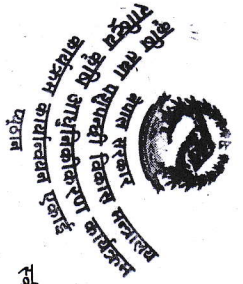 नेपाल सरकार
कृषि तथा पशुपन्छी विकास मन्त्रालय
राष्ट्रिय कृषि आधुनिकीकरण कार्यक्रम
कार्यक्रम कार्यान्वयन एकाई
प्यूठान